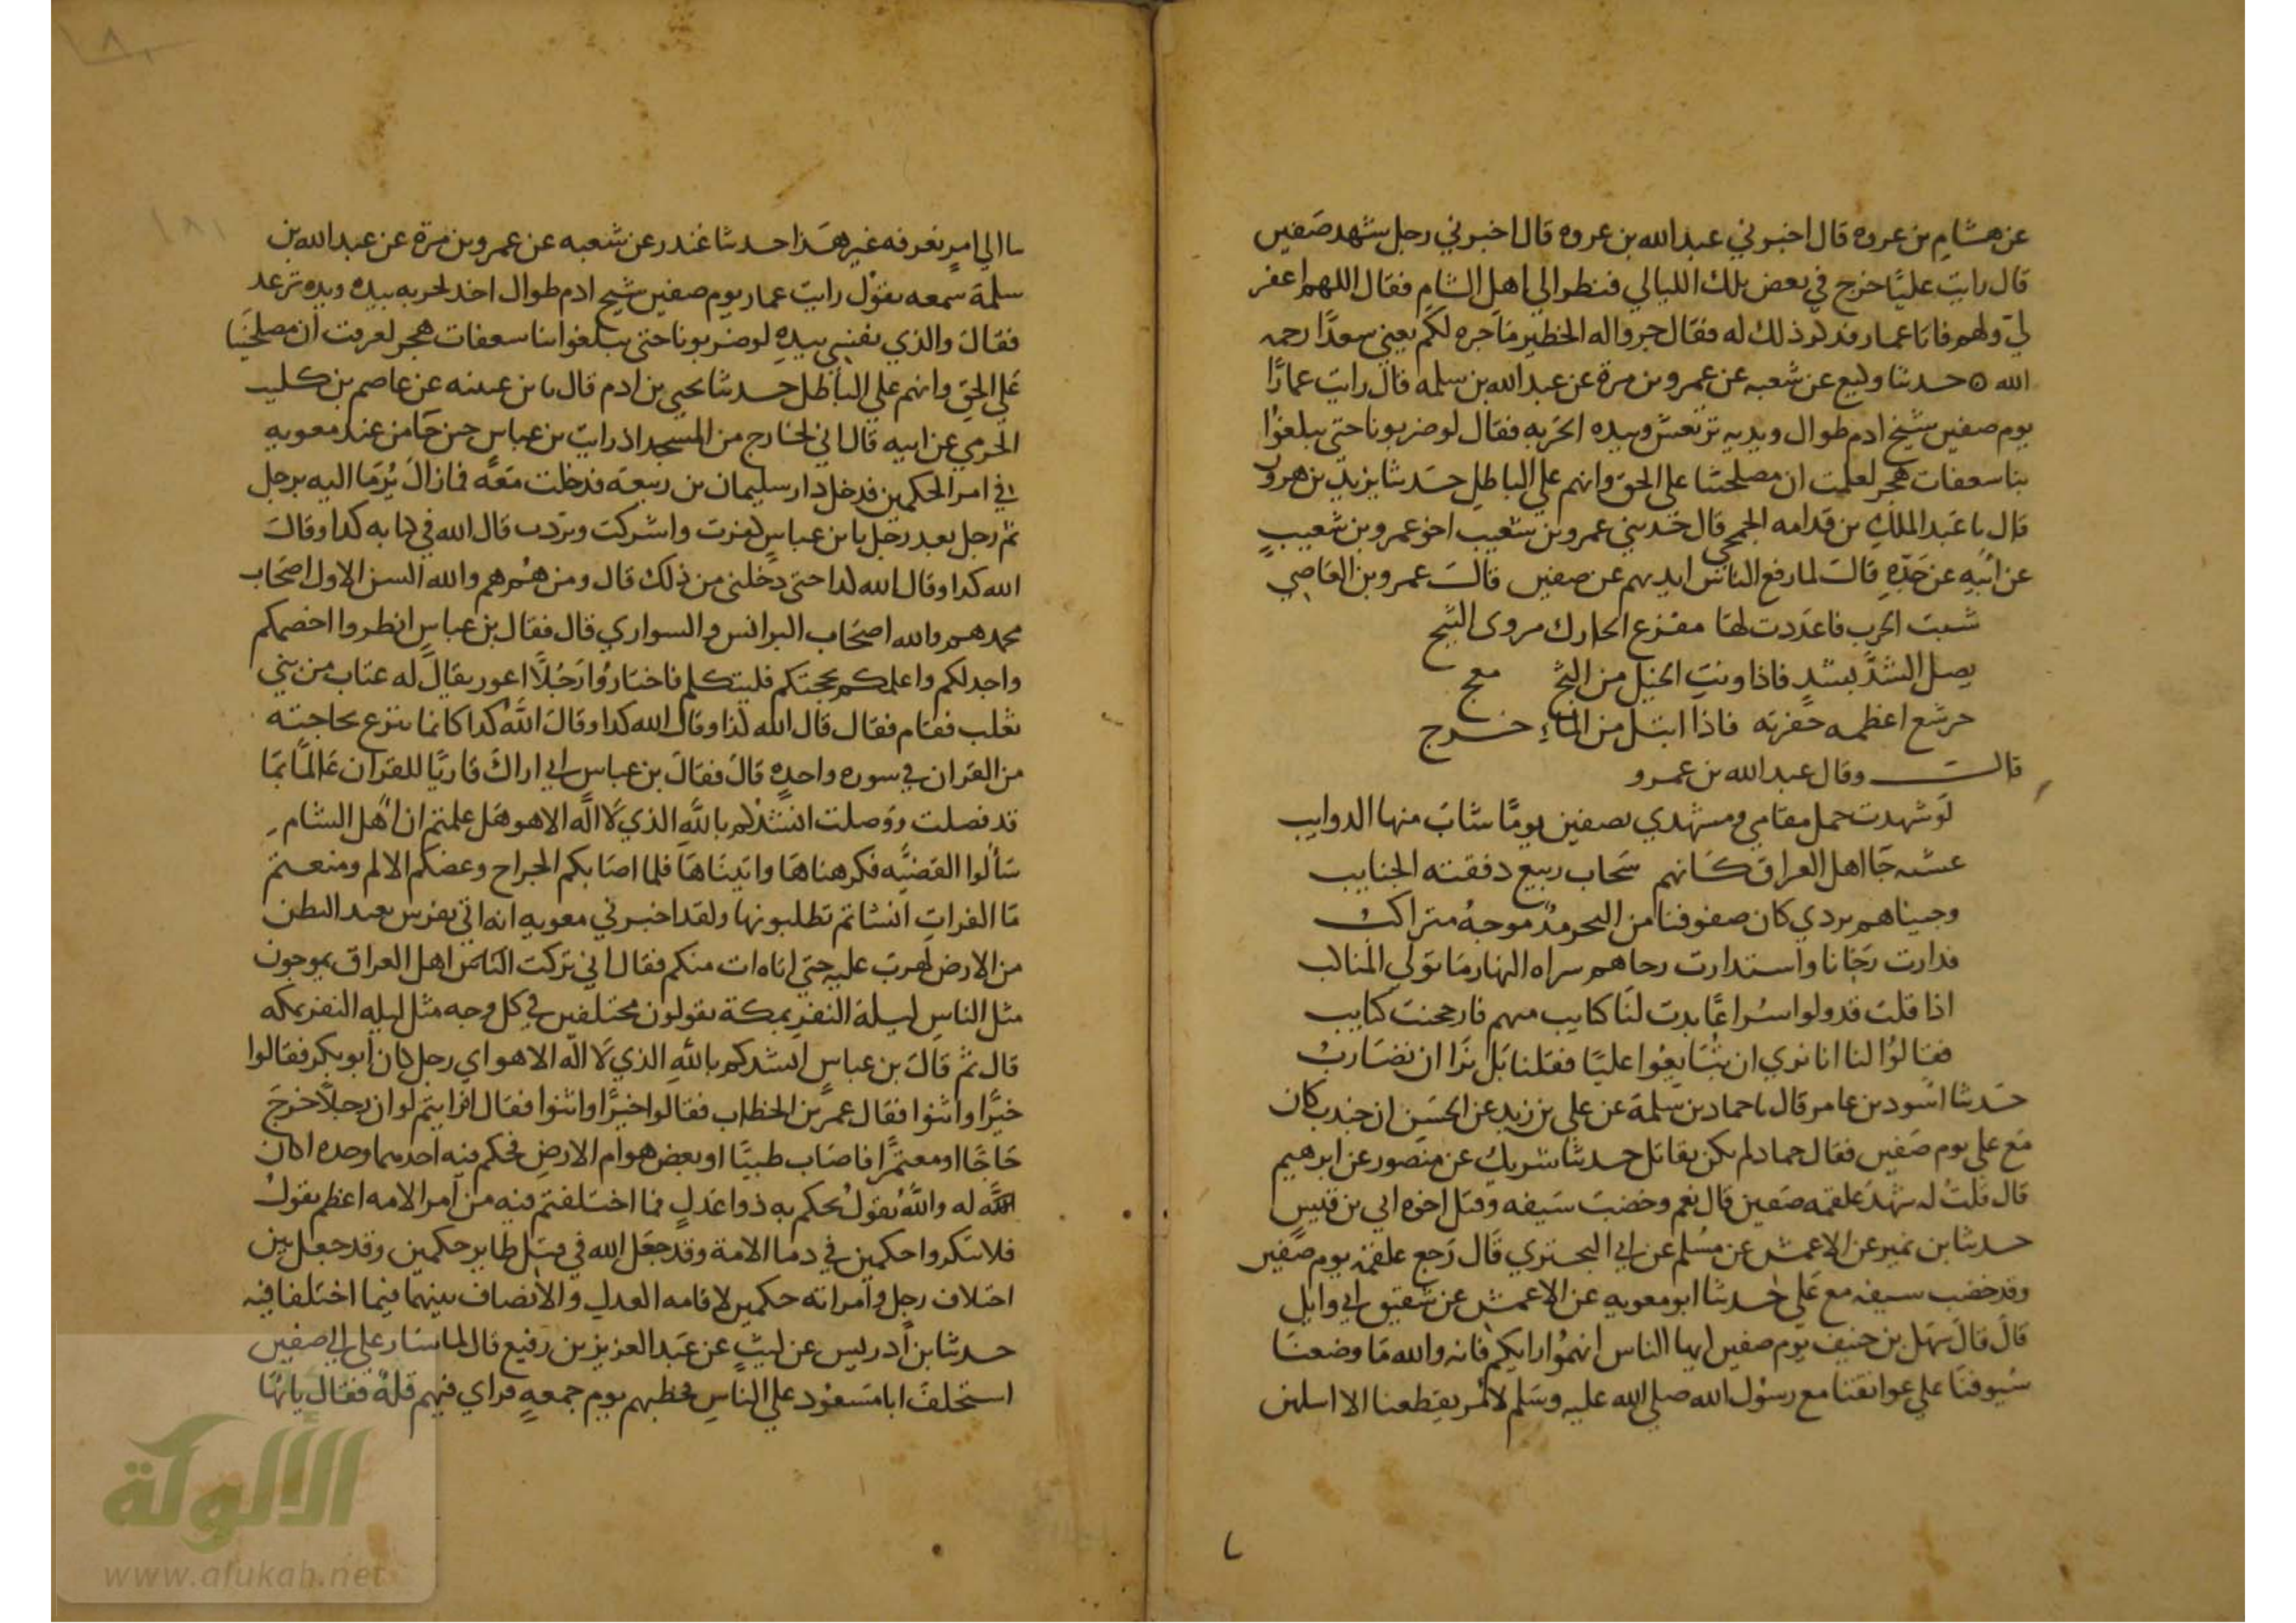 عن هشام بن عروه قال اخبرني عبد الله بن عروه قال اخبرني رجل شهد صفين
قال رايت عليًا خرج في بعض تلك الليالي فنظر الي اهل الشام فقال اللهم اغفر
لي ولهم فاتا عمار فذكر ذلك له فقال جروا له الخطير ما جره لكم يعني سعدًا رحمه
الله حدثنا وكيع عن شعبه عن عمرو بن مرة عن عبد الله بن سلمه قال رايت عمارًا
يوم صفين شيخ ادم طوال ويديه ترتعش وبيده الحربه فقال لو ضربونا حتى يبلغوا
بنا سعفات هجر لعلمت ان مصلحتنا علي الحق وانهم علي الباطل حدثنا يزيد بن هرون
قال نا عبد الملك بن قدامه الجمحي قال حدثني عمرو بن شعيب اخو عمرو بن شعيب
عن ابيه عن جده قال لما رفع الناس ايديهم عن صفين قال عمرو بن العاصي
شبت الحرب فاعددت لها مفزع الحارك مروى الثبج
يصل الشد بشد فاذا ونت الخيل من الثج معج
جرشع اعظمه جفرته فاذا ابتل من الماء خرج
قال وقال عبد الله بن عمرو
لو شهدت جمل مقامي ومشهدي بصفين يومًا شاب منها الدوايب
عشيه جا اهل العراق كانهم سحاب ربيع دفقته الجنايب
وجيناهم بردي كان صفوفنا من البحر مد موجه متراكب
فدارت رحانا واستدارت رحاهم سراه النهار ما تولي المناكب
اذا قلت قد ولوا سراعًا بدت لنا كتايب منهم فارجحنت كتايب
فقالوا لنا انا نري ان تبايعوا عليًا فقلنا بل نرا ان نضارب
حدثنا اسود بن عامر قال نا حماد بن سلمة عن علي بن زيد عن الحسن ان جندب كان
مع علي يوم صفين فقال حماد لم يكن يقاتل حدثنا شريك عن منصور عن ابرهيم
قال قلت له شهد علقمه صفين قال نعم وخضب سيفه وقتل اخوه ابي بن قيس
حدثنا بن نمير عن الاعمش عن مسلم عن ابي البختري قال رجع علقمه يوم صفين
وقد خضب سيفه مع علي حدثنا ابو معويه عن الاعمش عن شقيق ابي وايل
قال قال سهل بن حنيف يوم صفين ايها الناس اتهموا رايكم فانه والله ما وضعنا
سيوفنا علي عواتقنا مع رسول الله صلي الله عليه وسلم لامر يفظعنا الا اسلهن
نا الي امر نعرفه غير هذا حدثنا غندر عن شعبه عن عمرو بن مرة عن عبد الله بن
سلمة سمعه يقول رايت عمار يوم صفين شيخ ادم طوال اخد الحربه بيده ويده ترعد
فقال والذي نفسي بيده لو ضربونا حتى يبلغوا بنا سعفات هجر لعرفت ان مصلحينا
علي الحق وانهم علي الباطل حدثنا يحيي بن ادم قال نا بن عيينه عن عاصم بن كليب
الجرمي عن ابيه قال اني لخارج من المسجد اذ رايت بن عباس حين جا من عند معويه
في امر الحكمين فدخل دار سليمان بن ربيعة فدخلت معه فما زال يرما اليه برجل
ثم رجل بعد رجل يا بن عباس كفرت واشركت ونددت قال الله في كتابه كدا وقال
الله كدا وقال الله كدا حتى دخلني من ذلك قال ومن هم هم والله السن الاول اصحاب
محمد هم والله اصحاب البرانس والسواري قال فقال بن عباس انظروا اخصمكم
واجدلكم واعلمكم بحجتكم فليتكلم فاختاروا رجلًا اعور يقال له عتاب من بني
تغلب فقام فقال قال الله كذا وقال الله كدا وقال الله كدا كانما ينزع بحاجته
من القران في سوره واحده قال فقال بن عباس اني اراك قاريًا للقران عالمًا بما
قد فصلت ووصلت انشدكم بالله الذي لا اله الا هو هل علمتم ان اهل الشام
سالوا القضيه فكرهناها وابيناها فلما اصابكم الجراح وعضكم الالم ومنعتم
ما الفرات انشاتم تطلبونها ولقد اخبرني معويه انه اتي بفرس بعيد البطن
من الارض لهرب عليه حتى اتاه ات منكم فقال اني تركت الناس اهل العراق يموجون
مثل الناس ليلة النفر بمكة يقولون مختلفين في كل وجه مثل ليله النفر بمكه
قال ثم قال بن عباس انشدكم بالله الذي لا اله الا هو اي رجل كان ابو بكر فقالوا
خيرًا واثنوا فقال عمر بن الخطاب فقالوا خيرًا واثنوا فقال افرايتم لو ان رجلًا خرج
حاجًا او معتمرًا فاصاب ظبيًا او بعض هوام الارض فحكم فيه احدهما وحده اكان
له والله يقول يحكم به ذوا عدل فما اختلفتم فيه من امر الامه اعظم يقول
فلا تنكروا حكمين في دما الامة وقد جعل الله في قتل طاير حكمين وقد جعل بين
اختلاف رجل وامراته حكمين لاقامه العدل والانصاف بينهما فيما اختلفا فيه
حدثنا بن ادريس عن ليث عن عبد العزيز بن رفيع قال لما سار علي الي صفين
استخلف ابا مسعود علي الناس فخطبهم يوم جمعه فراي فيهم قله فقال يا ايها
الألوكة
www.alukah.net